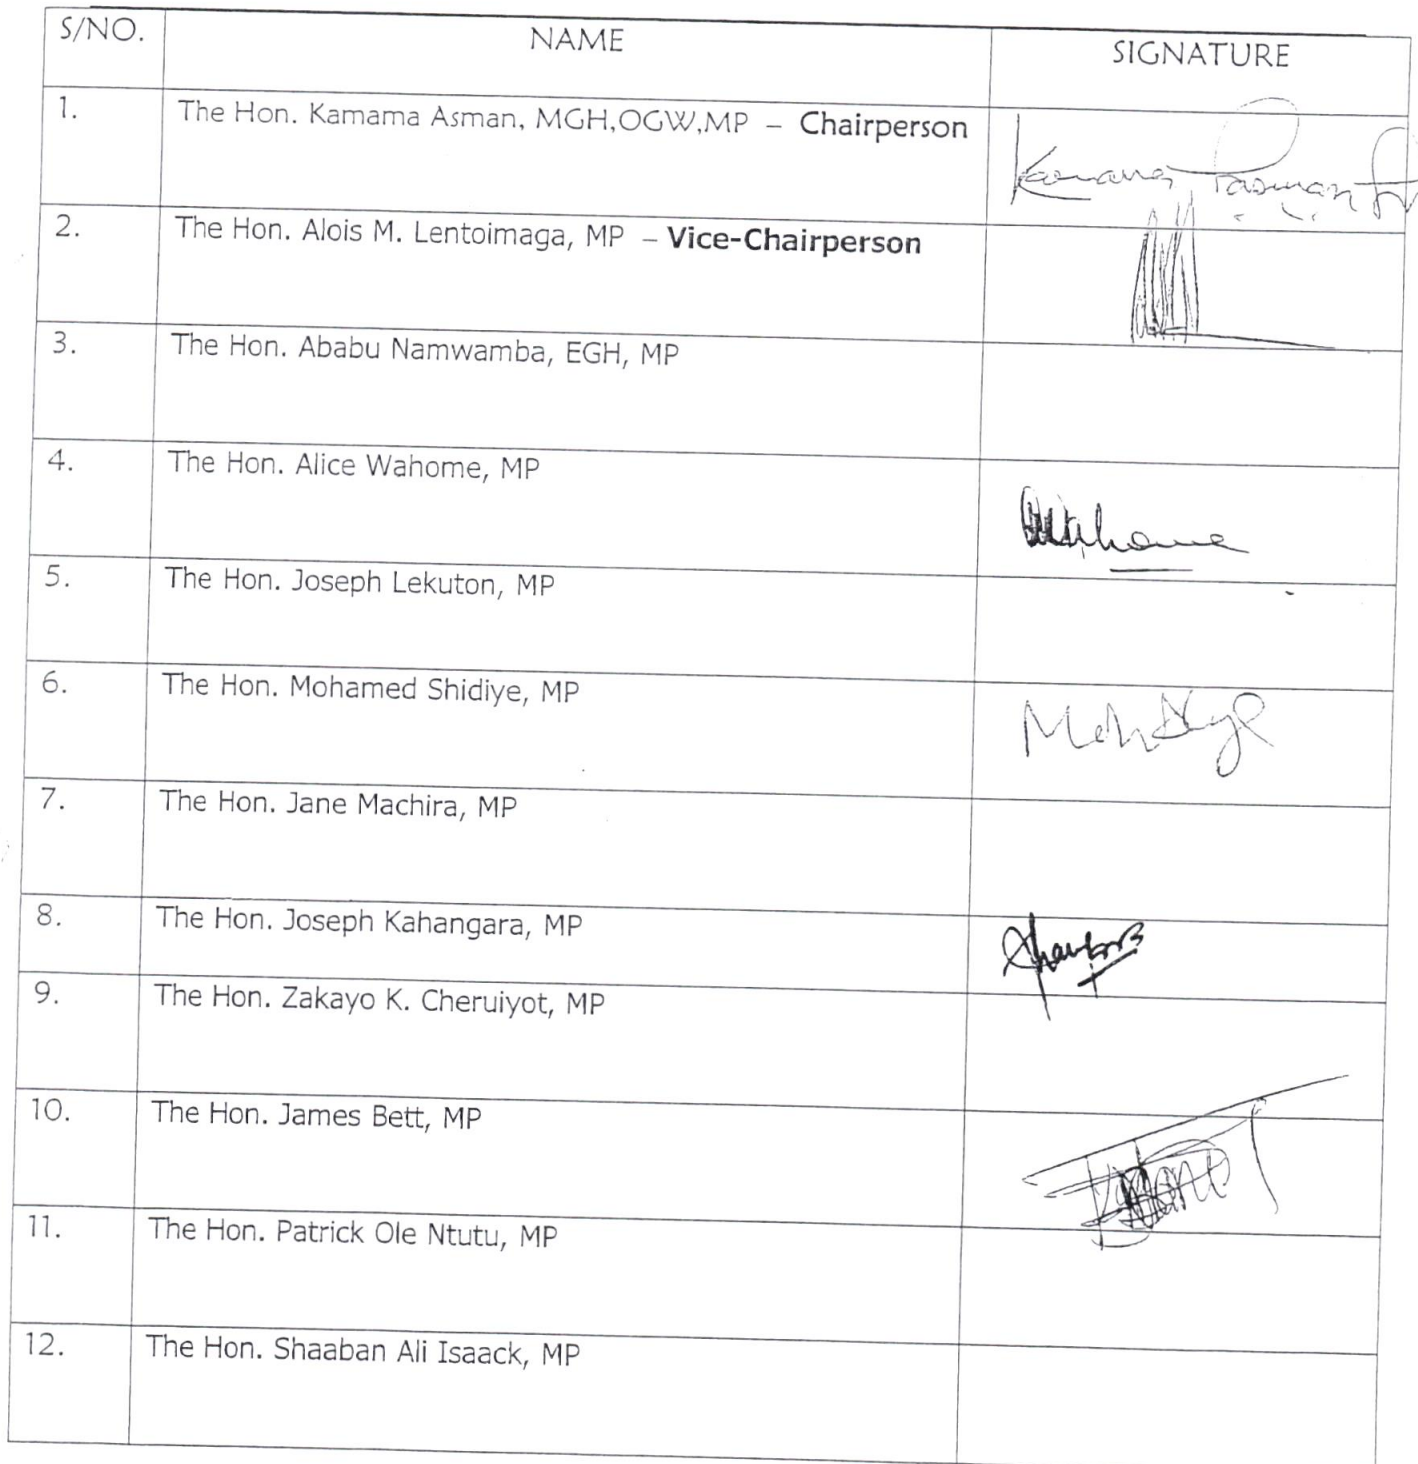 S/NO. NAME SIGNATURE
1. The Hon. Kamama Asman, MGH,OGW,MP – Chairperson
2. The Hon. Alois M. Lentoimaga, MP – Vice-Chairperson
3. The Hon. Ababu Namwamba, EGH, MP
4. The Hon. Alice Wahome, MP
5. The Hon. Joseph Lekuton, MP
6. The Hon. Mohamed Shidiye, MP
7. The Hon. Jane Machira, MP
8. The Hon. Joseph Kahangara, MP
9. The Hon. Zakayo K. Cheruiyot, MP
10. The Hon. James Bett, MP
11. The Hon. Patrick Ole Ntutu, MP
12. The Hon. Shaaban Ali Isaack, MP